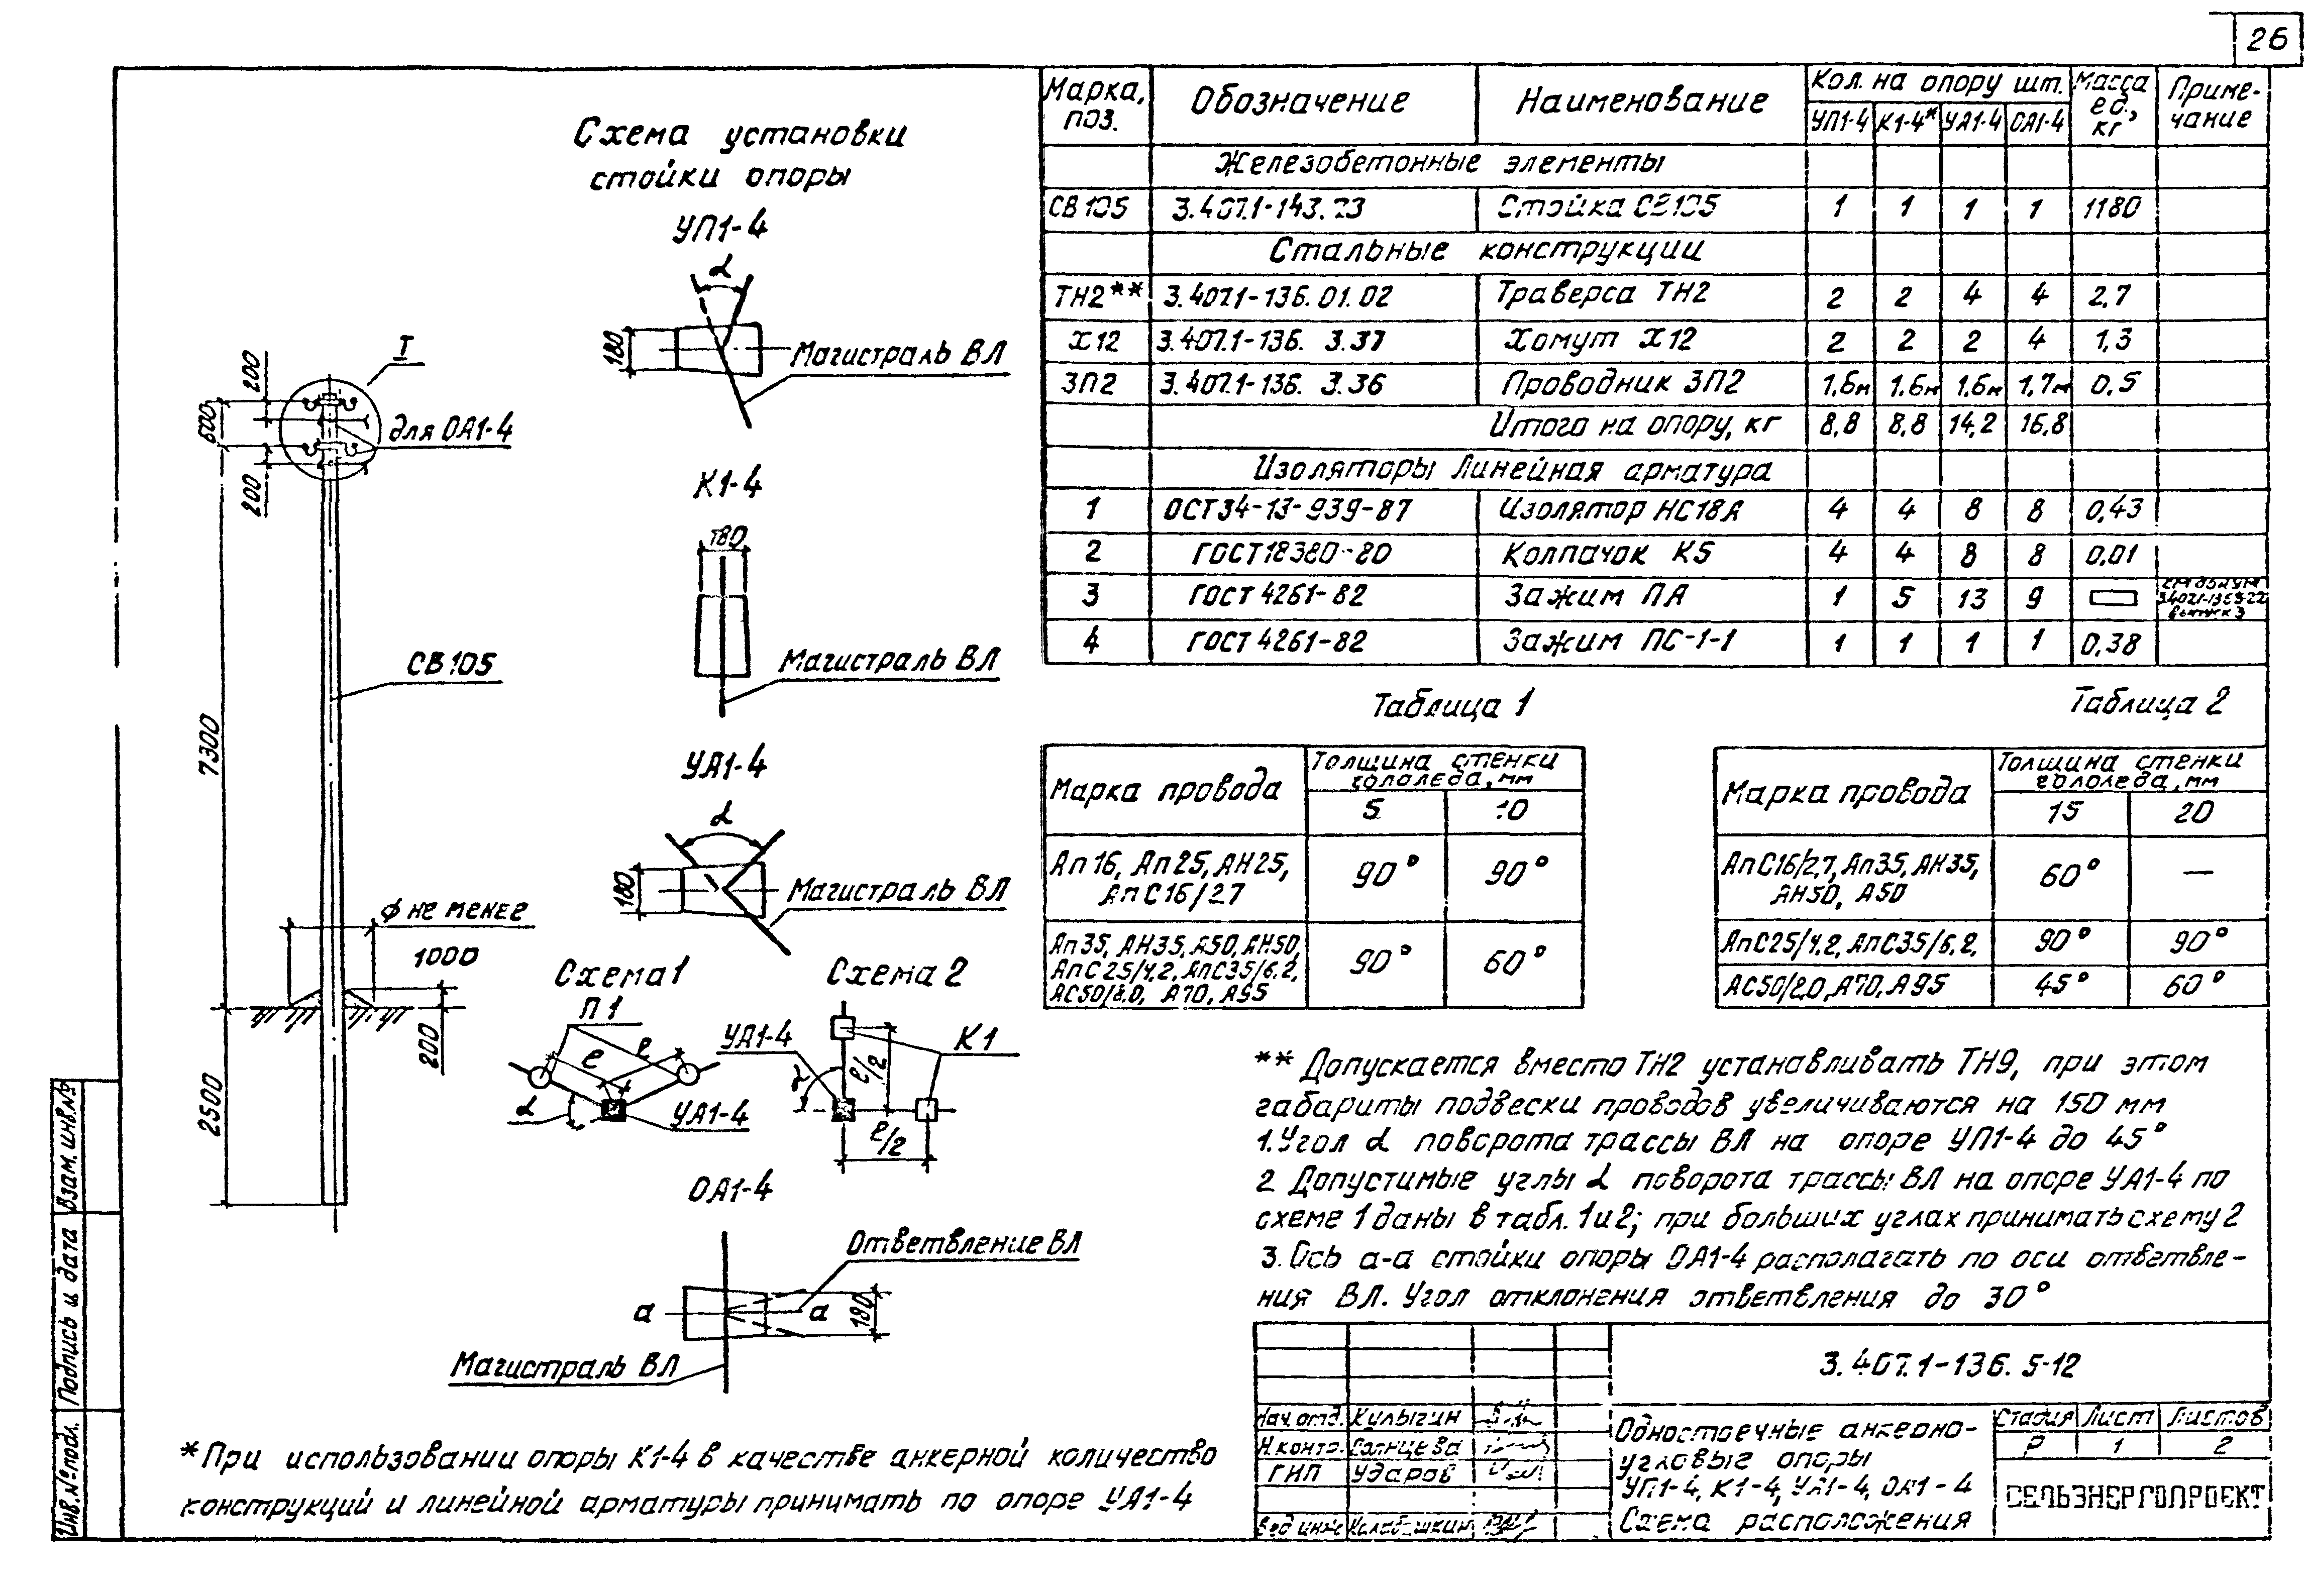 26
Схема установки
стойки опоры
УП1-4
α
180
Магистраль ВЛ
К1-4
180
Магистраль ВЛ
УА1-4
α
180
Магистраль ВЛ
I
200
600
для ОА1-4
200
СВ105
7300
ф не менее
1000
200
2500
Схема 1
П1
ℓ
ℓ
α
УА1-4
Схема 2
УА1-4
К1
α
ℓ/2
ℓ/2
ОА1-4
Ответвление ВЛ
а
а
180
Магистраль ВЛ
*При использовании опоры К1-4 в качестве анкерной количество
конструкций и линейной арматуры принимать по опоре УА1-4
Марка, поз. | Обозначение | Наименование | Кол. на опору шт. | Масса ед., кг | Приме-чание
УП1-4 | К1-4* | УА1-4 | ОА1-4
Железобетонные элементы
СВ105 | 3.407.1-143.23 | Стойка СВ105 | 1 | 1 | 1 | 1 | 1180
Стальные конструкции
ТН2** | 3.407.1-136.01.02 | Траверса ТН2 | 2 | 2 | 4 | 4 | 2,7
Х12 | 3.407.1-136. 3.37 | Хомут Х12 | 2 | 2 | 2 | 4 | 1,3
ЗП2 | 3.407.1-136. 3.36 | Проводник ЗП2 | 1,6м | 1,6м | 1,6м | 1,7м | 0,5
Итого на опору, кг | 8,8 | 8,8 | 14,2 | 16,8
Изоляторы Линейная арматура
1 | ОСТ34-13-939-87 | Изолятор НС18А | 4 | 4 | 8 | 8 | 0,43
2 | ГОСТ18380-80 | Колпачок К5 | 4 | 4 | 8 | 8 | 0,01
3 | ГОСТ 4261-82 | Зажим ПА | 1 | 5 | 13 | 9 | выпуск 3
4 | ГОСТ 4261-82 | Зажим ПС-1-1 | 1 | 1 | 1 | 1 | 0,38
Таблица 1
Марка провода | Толщина стенки гололеда, мм
5 | 10
Ап16, Ап25, АН25, АпС16/2.7 | 90° | 90°
Ап35, АН35, А50, АН50, АпС25/4,2, АпС35/6,2, АС50/8,0, А70, А95 | 90° | 60°
Таблица 2
Марка провода | Толщина стенки гололеда, мм
15 | 20
АпС16/2,7, Ап35, АН35, АН50, А50 | 60° | —
АпС25/4,2, АпС35/6,2, | 90° | 90°
АС50/8,0, А70, А95 | 45° | 60°
** Допускается вместо ТН2 устанавливать ТН9, при этом
габариты подвески проводов увеличиваются на 150 мм
1. Угол α поворота трассы ВЛ на опоре УП1-4 до 45°
2 Допустимые углы α поворота трассы ВЛ на опоре УА1-4 по
схеме 1 даны в табл. 1 и 2; при больших углах принимать схему 2
3. Ось а-а стойки опоры ОА1-4 располагать по оси ответвле-
ния ВЛ. Угол отклонения ответвления до 30°
3.407.1-136. 5-12
Нач.отд. Кулыгин
Н.контр. Солнцева
ГИП Ударов
Вед инж
Одностоечные анкерно-
угловые опоры
УП1-4, К1-4, УА1-4, ОА1-4
Схема расположения
Стадия | Лист | Листов
Р | 1 | 2
СЕЛЬЭНЕРГОПРОЕКТ
Взам. инв.№
Подпись и дата
Инв.№ подл.